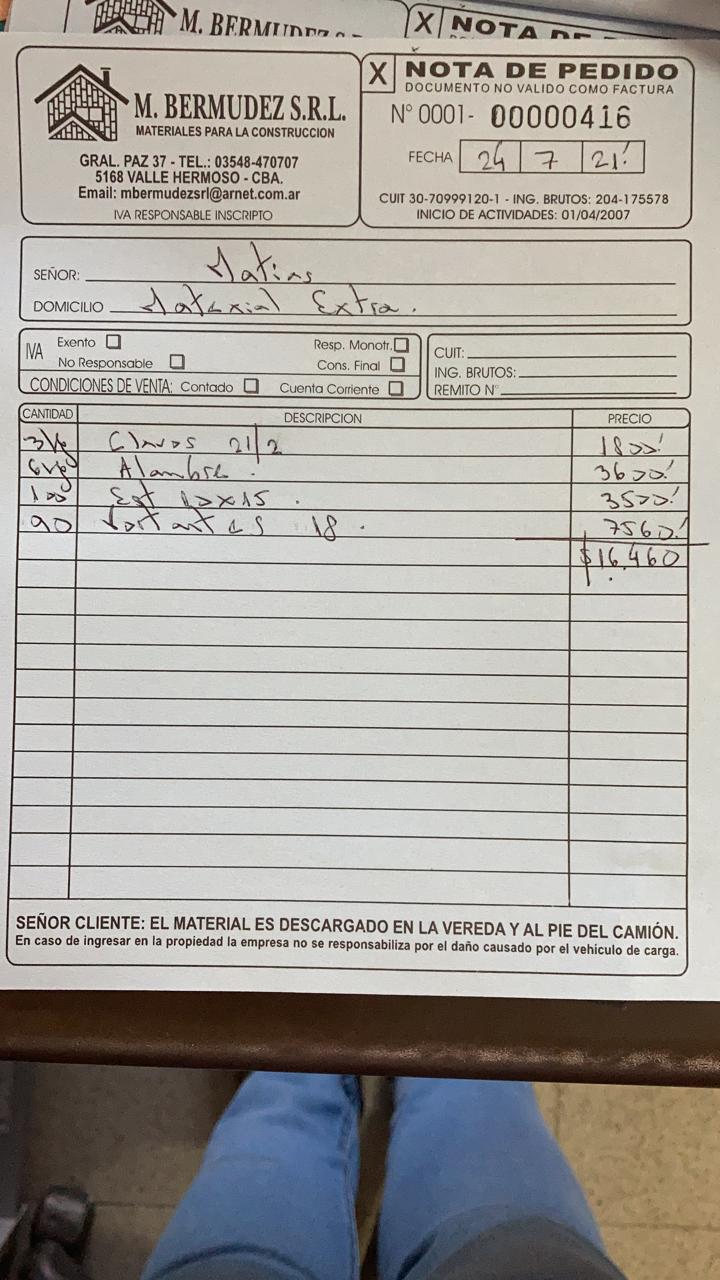 M. BERMUDEZ S.R.L.
X NOTA DE
M. BERMUDEZ S.R.L.
MATERIALES PARA LA CONSTRUCCION
GRAL. PAZ 37 - TEL.: 03548-470707
5168 VALLE HERMOSO - CBA.
Email: mbermudezsrl@arnet.com.ar
IVA RESPONSABLE INSCRIPTO
X NOTA DE PEDIDO
DOCUMENTO NO VALIDO COMO FACTURA
N° 0001- 00000416
FECHA 24 7 21
CUIT 30-70999120-1 - ING. BRUTOS: 204-175578
INICIO DE ACTIVIDADES: 01/04/2007
SEÑOR: Matias
DOMICILIO Material Extra.
IVA Exento Resp. Monotr.
No Responsable Cons. Final
CONDICIONES DE VENTA: Contado Cuenta Corriente
CUIT:
ING. BRUTOS:
REMITO N°
CANTIDAD DESCRIPCION PRECIO
3kg Clavos 21/2 1800
6kg Alambre. 3600
100 Est 10x15. 3500
90 18. 7560
$16.460
SEÑOR CLIENTE: EL MATERIAL ES DESCARGADO EN LA VEREDA Y AL PIE DEL CAMIÓN.
En caso de ingresar en la propiedad la empresa no se responsabiliza por el daño causado por el vehiculo de carga.